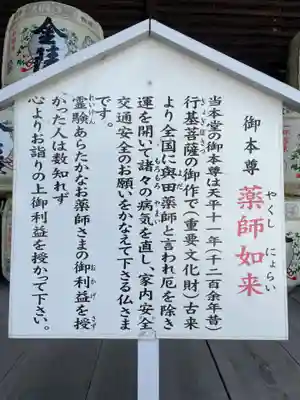 御本尊 薬師如来
やくし にょらい
当本堂の御本尊は天平十一年(千二百余年昔)
行基菩薩の御作で(重要文化財)古来
より全国に輿田薬師と言われ厄を除き
運を開いて諸々の病気を直し、家内安全
もろもろ やまい
交通安全のお願いをかなえて下さる仏さま
です。
霊験あらたかなお薬師さまの御利益を授
れいけん おかげ さず
かった人は数知れず
心よりお詣りの上御利益を授かって下さい。